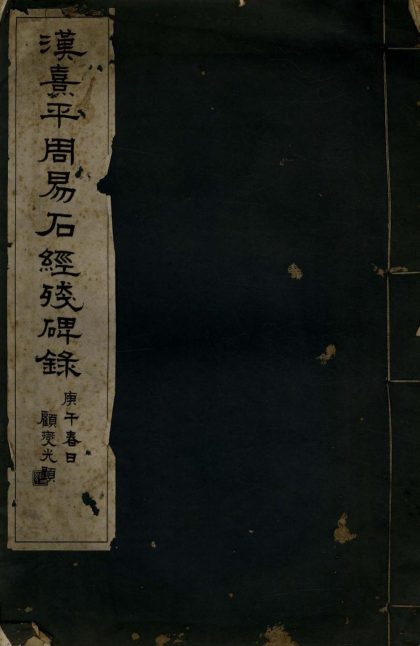 漢熹平周易石經殘碑錄
庚午春日
顧燮光題